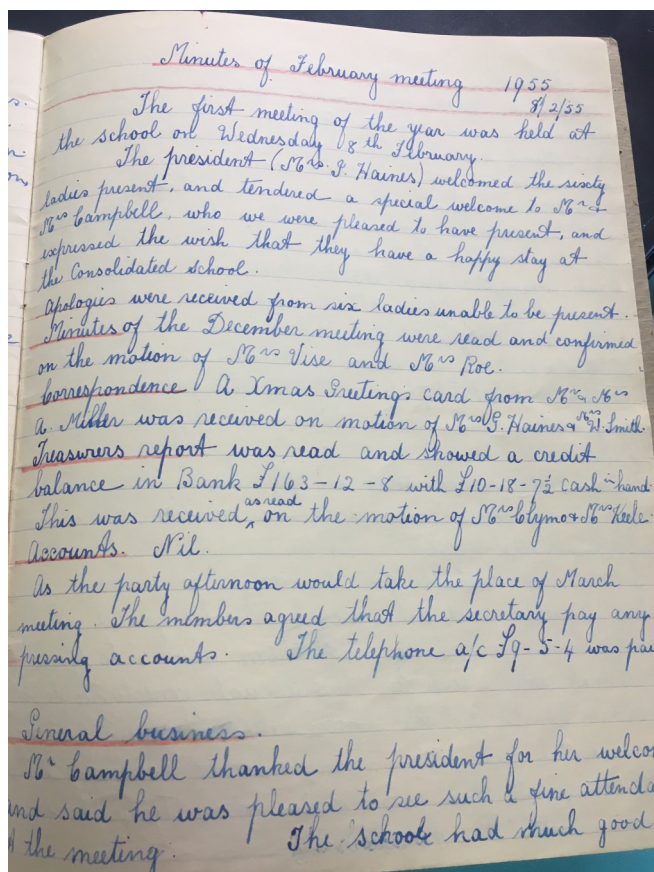 Minutes of February meeting 1955
8/2/55
The first meeting of the year was held at
the school on Wednesday 8th February.
The president (Mrs. G. Haines) welcomed the sixty
ladies present, and tendered a special welcome to Mr &
Mrs Campbell, who we were pleased to have present, and
expressed the wish that they have a happy stay at
the Consolidated School.
Apologies were received from six ladies unable to be present.
Minutes of the December meeting were read and confirmed
on the motion of Mrs Vise and Mrs Roe.
Correspondence A Xmas Greetings card from Mr & Mrs
A. Miller was received on motion of Mrs G. Haines & Mrs W. Smith.
Treasurers report was read and showed a credit
balance in Bank £163-12-8 with £10-18-7½ cash in hand.
This was received as read on the motion of Mrs Clymo & Mrs Keele.
Accounts. Nil.
As the party afternoon would take the place of March
meeting. The members agreed that the secretary pay any
pressing accounts. The telephone a/c £9-5-4 was pai
General business.
Mr Campbell thanked the president for her welco
and said he was pleased to see such a fine attenda
at the meeting. The school had much good